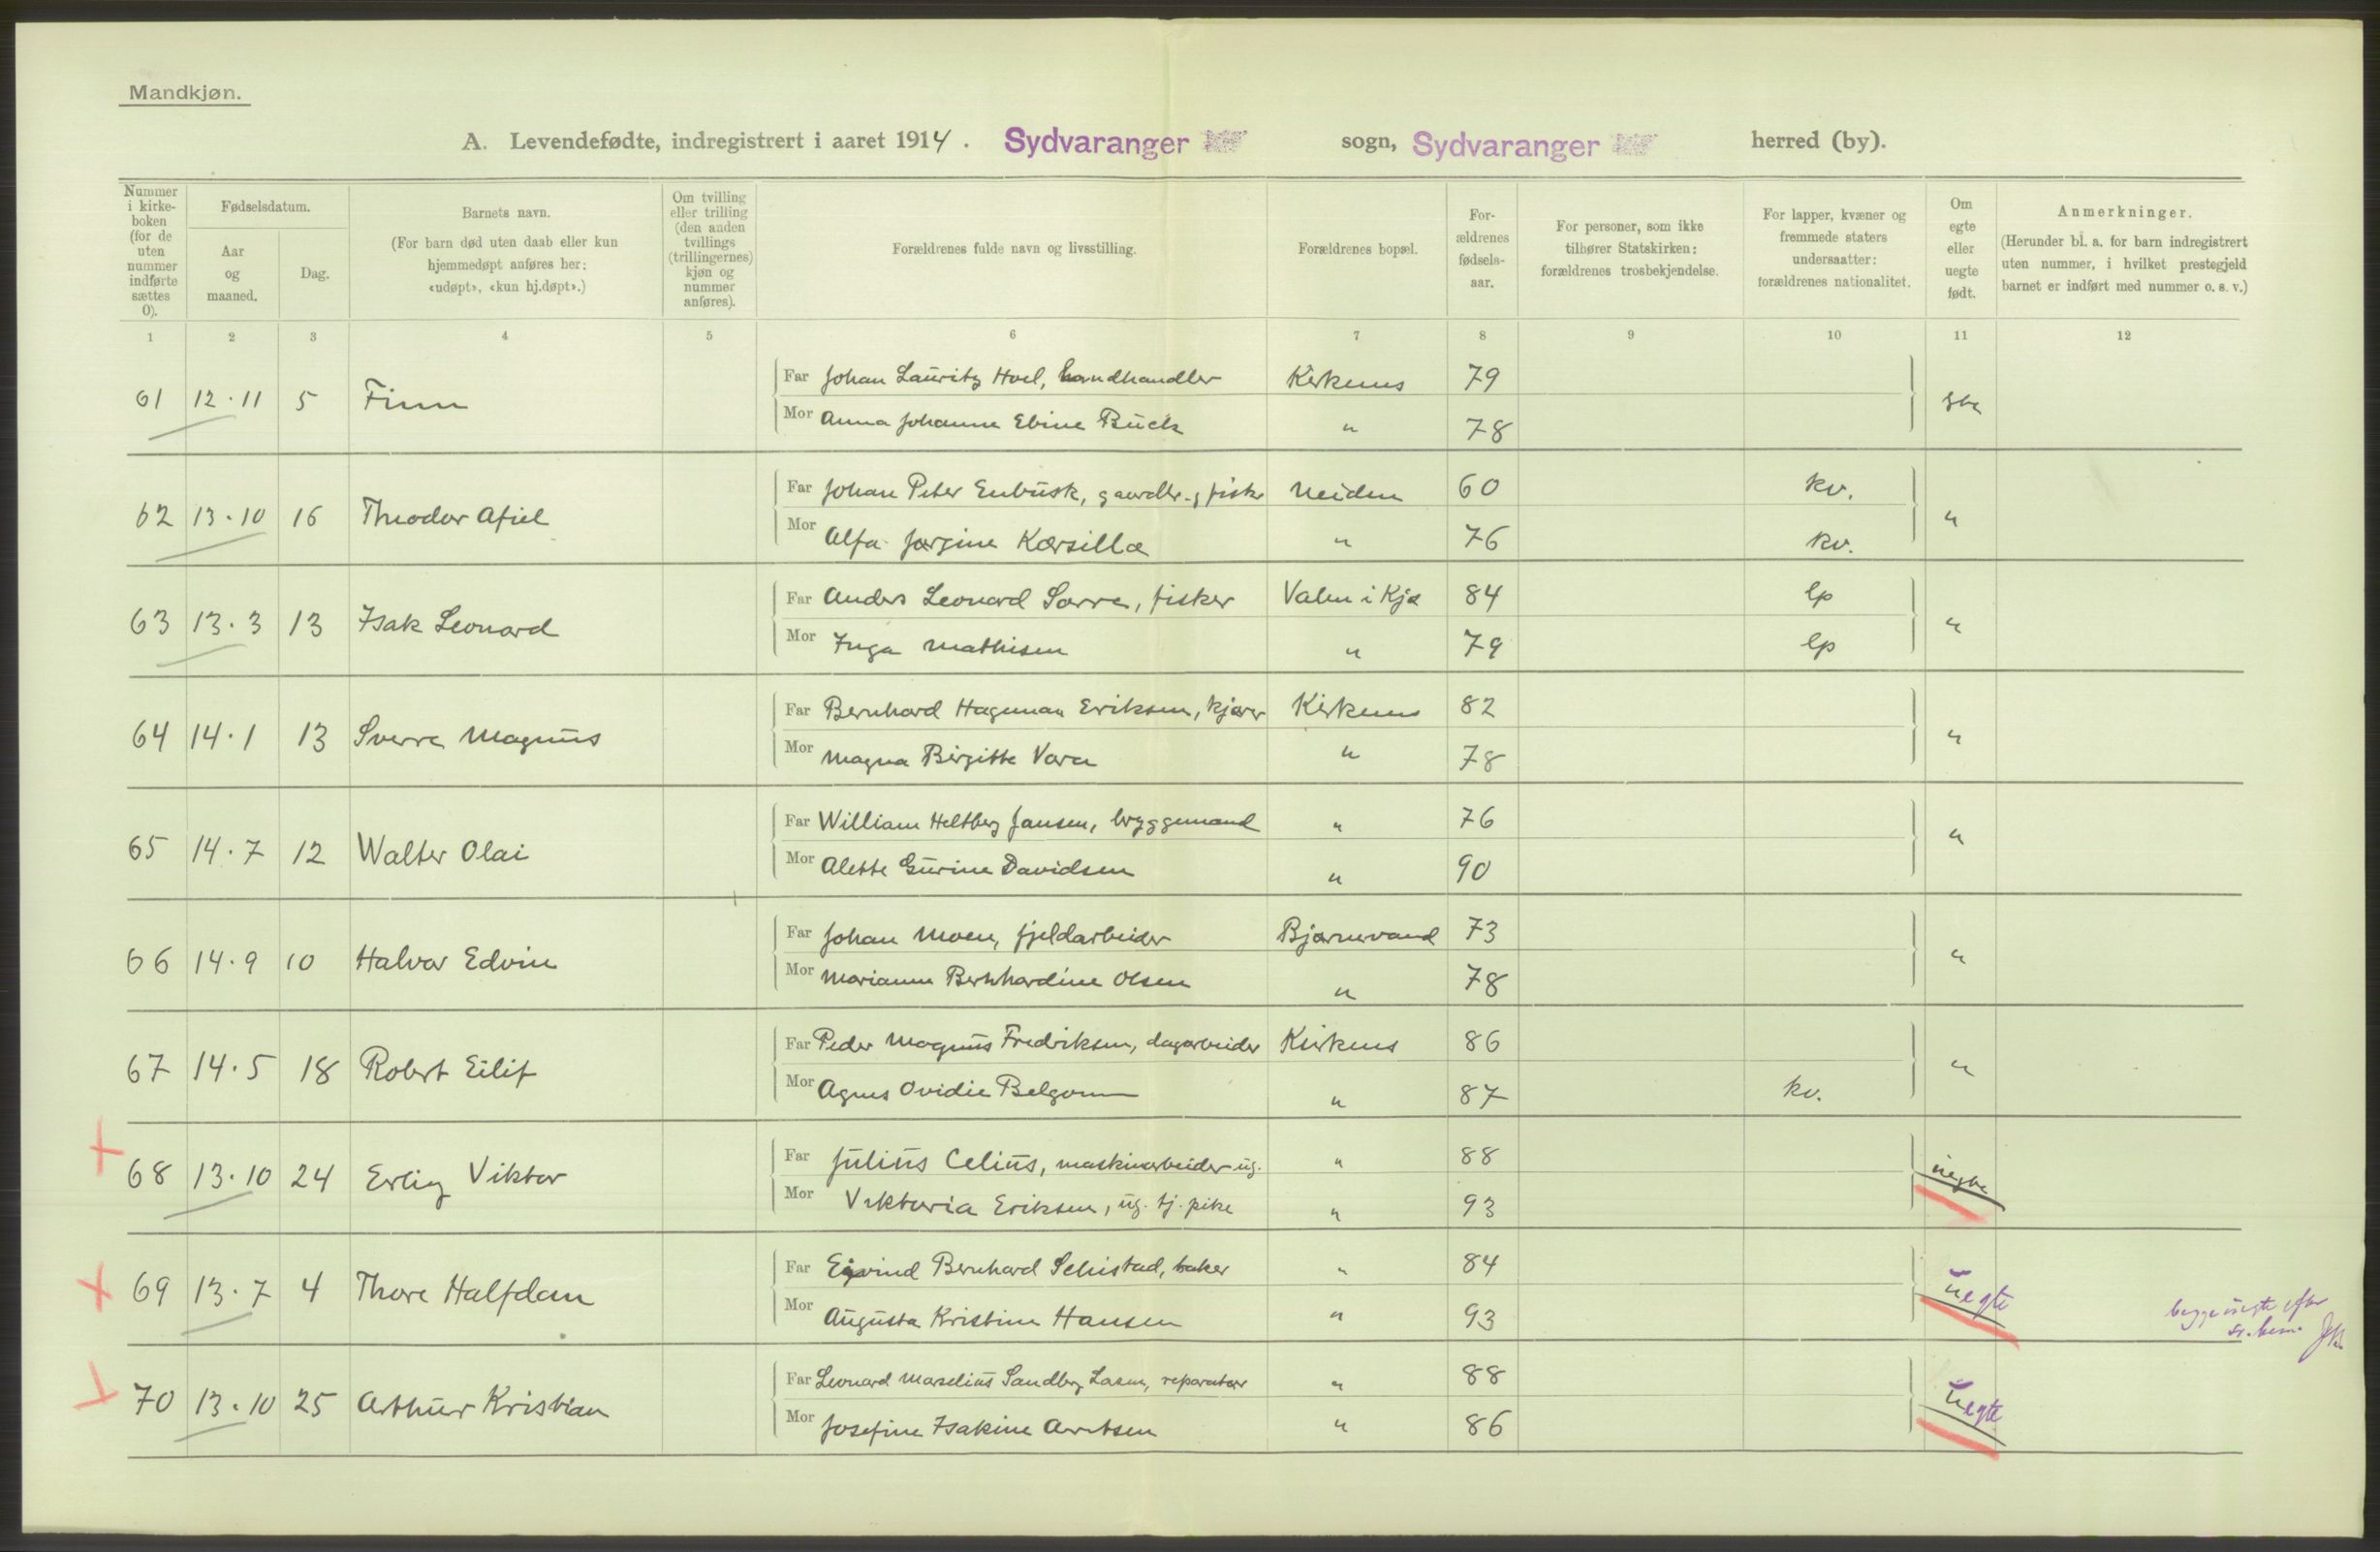 Mandkjøn.
A. Levendefødte, indregistrert i aaret 1914. Sydvaranger sogn, Sydvaranger herred (by).
Nummer i kirke-boken (for de uten nummer indførte sættes 0).
Fødselsdatum.
Aar og maaned.
Dag.
Barnets navn.
(For barn død uten daab eller kun hjemmedøpt anføres her: «udøpt», «kun hj.døpt».)
Om tvilling eller trilling (den anden tvillings (trillingernes) kjøn og nummer anføres).
Forældrenes fulde navn og livsstilling.
Forældrenes bopæl.
For-ældrenes fødsels-aar.
For personer, som ikke tilhører Statskirken: forældrenes trosbekjendelse.
For lapper, kvæner og fremmede staters undersaatter: forældrenes nationalitet.
Om egte eller uegte født.
Anmerkninger.
(Herunder bl. a. for barn indregistrert uten nummer, i hvilket prestegjeld barnet er indført med nummer o. s. v.)
1 2 3 4 5 6 7 8 9 10 11 12
Far Johan Lauritz Hoel, handhandler Kirkenes 79
61 12.11 5 Finn
Mor Anna Johanne Ebine Buck " 78
Far Johan Peter Enbusk, gaardbr. Neiden 60 kv.
62 13.10 16 Theodor "
Mor Alfa Jørgine Kærsillæ " 76 kv.
Far Anders Leonard Sarre, fisker Valen i Kjø 84 lp
63 13.3 13 Isak Leonard "
Mor Inga Mathisen " 79 lp
Far Bernhard Hageman Eriksen, kjører Kirkenes 82
64 14.1 13 Sverre Magnus "
Mor Magna Birgitte Vara " 78
Far William Heltberg Jansen, byggemand " 76
65 14.7 12 Walter Olai "
Mor Alette Gurine Davidsen " 90
Far Johan Moen, fjeldarbeider Bjørnevand 73
66 14.9 10 Halvor Edvin "
Mor Marianne Bernhardine Olsen " 78
Far Peder Magnus Fredriksen, dagarbeider Kirkenes 86
67 14.5 18 Robert Eilif "
Mor Agnes Ovidie Belgonn " 87 kv.
Far Julius Celius, maskinarbeider ug. " 88
68 13.10 24 Erling Viktor uegte
Mor Viktoria Eriksen, ug. tj. pike " 93
Far Eivind Bernhard Schistad, baker " 84
69 13.7 4 Thore Halfdan uegte
Mor Augusta Kristine Hansen " 93
Far Leonard Marselius Sandberg Lasen, reparatør " 88
70 13.10 25 Arthur Kristian uegte
Mor Josefine Isakine Arntsen " 86